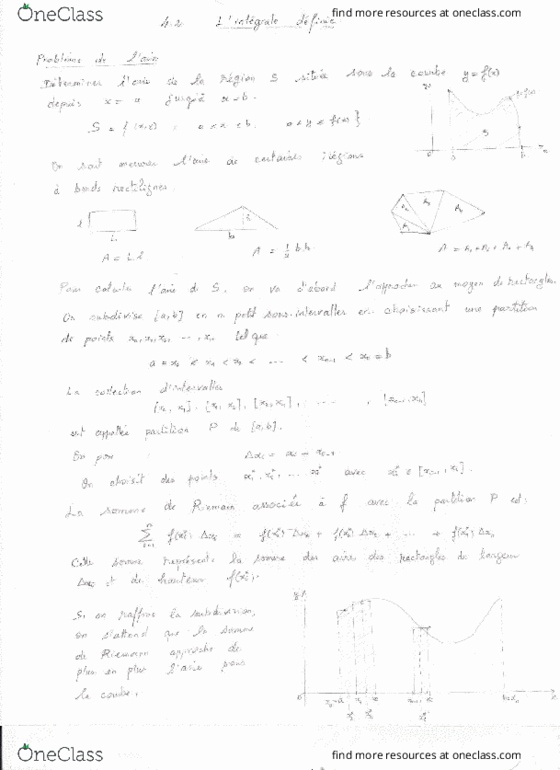 OneClass
find more resources at oneclass.com
4.2 L'intégrale définie
Problème de l'aire
Déterminer l'aire de la région S située sous la courbe y = f(x)
depuis x = a jusqu'à x = b.
S = { (x,y) , a ≤ x ≤ b, 0 ≤ y ≤ f(x) }
On sait mesurer l'aire de certaines régions
à bords rectilignes.
A = L l
A = 1/2 b h
A = A1 + A2 + A3 + A4
Pour calculer l'aire de S, on va d'abord l'approcher au moyen de rectangles
On subdivise [a,b] en n petit sous-intervalles en choisissant une partition
de points x0, x1, x2, ..., xn tel que
a = x0 < x1 < x2 < ... < xn-1 < xn = b
La collection d'intervalles
[x0, x1], [x1, x2], [x2, x3], ..., [xn-1, xn]
est appelée partition P de [a,b].
On pose Δxi = xi - xi-1
On choisit des points x1*, x2*, ... xn* avec xi* ∈ [xi-1, xi].
La somme de Riemann associée à f avec la partition P est:
∑ f(xi*) Δxi = f(x1*) Δx1 + f(x2*) Δx2 + ... + f(xn*) Δxn
Cette somme représente la somme des aires des rectangles de longueur
Δxi et de hauteur f(xi*).
Si on raffine la subdivision,
on s'attend que la somme
de Riemann approche de
plus en plus l'aire sous
la courbe.
OneClass
find more resources at oneclass.com